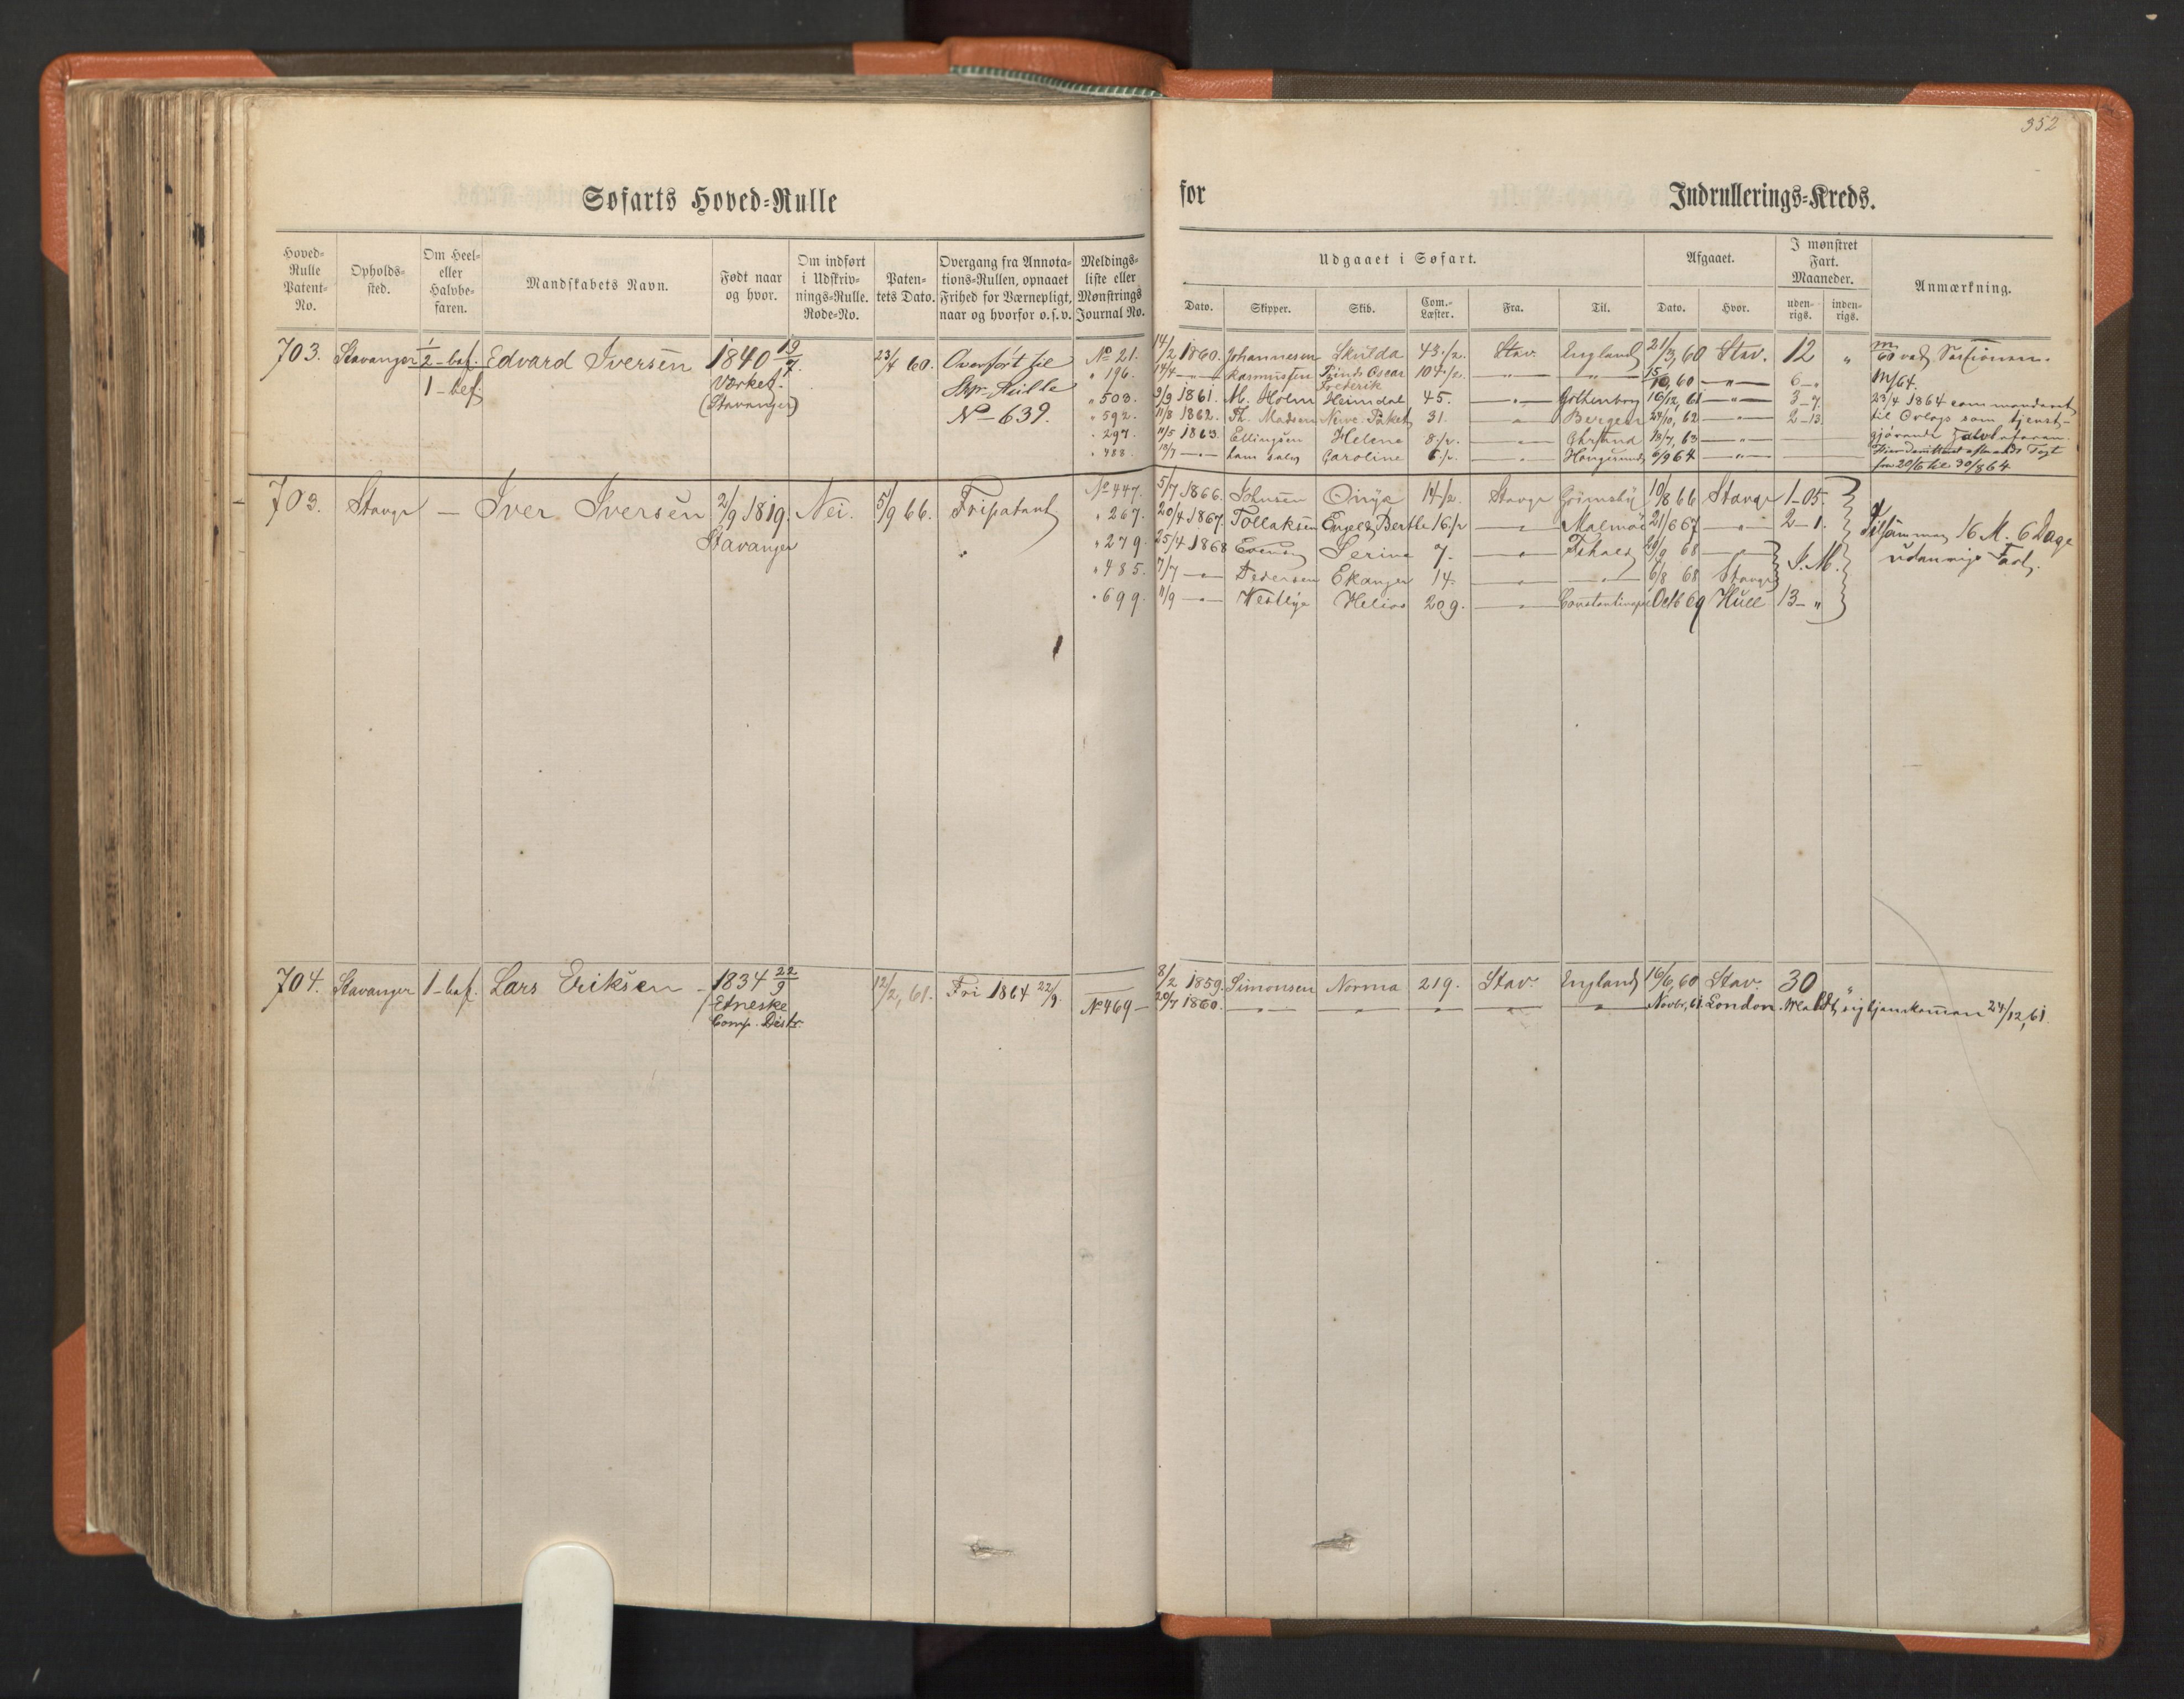 352
Søfarts Hoved=Rulle for Indrullerings=Kreds.
Hoved=Rulle Patent=No.
Opholdssted.
Om Heel= eller Halvbefaren.
Mandskabets Navn.
Født naar og hvor.
Om indført i Udskrivnings=Rulle. Rode=No.
Patentets Dato.
Overgang fra Annotations=Rullen, opnaaet Frihed for Værnepligt, naar og hvorfor o.s.v.
Meldingsliste eller Mønstrings Journal No.
Udgaaet i Søfart.
Dato. Skipper. Skib. Com.=Læster. Fra. Til.
Afgaaet.
Dato. Hvor.
I mønstret Fart. Maaneder.
udenrigs. indenrigs.
Anmærkning.
703. Stavanger 1/2 - bef. Edvard Iversen 1840 19/7 23/4 60. Overført til No 21. 14/2 1860. Johannesen Skulda 43 1/2. Stav. England 21/3, 60 Stav. 12 "
1 - bef. Værket. (Stavanger) Skpr. Rulle No 639.
" 196. 14/4 — Rasmussen Prinds Oscar Frederik 104 1/2. — " — — " — 15/10, 60 — " — 6 - "
" 503. 3/9 1861. M. Holm Heimdal 45. — " — Gothenborg 16/12, 61 — " — 3 - 7
" 592. 11/8 1862. Th. Madsen Newc. Paket 31. — " — Bergen 24/10, 62 — " — 2 - 13
" 297. 11/5 1863. Ellingsen Helene 8 1/2. — " — Chrsund 18/7, 63 — " —
" 488. 18/7 — " — ham selv Caroline 6 1/2. — " — 6/9 64 — " —
M/64.
23/4 1864 commanderet
til Orlogs som tjenst-
gjørende
fra 20/6 til 30/8 64
703. Stavgr — Iver Iversen 2/9 1819. Nei. 5/9 66. Fripatent No 447. 5/7 1866. Johnsen Onyx 14 1/2. Stavgr Grimsby 10/8 66 Stavgr 1 - 05.
Stavanger " 267. 20/4 1867. Tollaksen Engel Berthe 16 1/2 — " — Malmö 21/6 67 — " — 2 - 1.
" 279. 25/4 1868 Evensen Serine 7. — " — 68 — " — I. M.
" 485. 7/7 — " — Pedersen Ekanger 14. — " — — " — 6/8 68 Stavgr
" 699. 11/9 — " — Westbye Helios 209. — " — Constantinopel Oct 69 Hull 13 - "
Tilsammen 16 M. 6 Dage
udenrigs Fart.
704. Stavanger 1 - bef. Lars Eriksen 1834 22/9 12/2, 61. Fri 1864 22/9. 8/2 1859. Simonsen Norma 219. Stav. England 16/6, 60 Stav. 30 "
Etneske Comp. Distr. No 469 — 28/7 1860. — " — — " — — " — — " — — " — Novbr, 61. London. Meldt sig hjemkommen 24/12, 61.